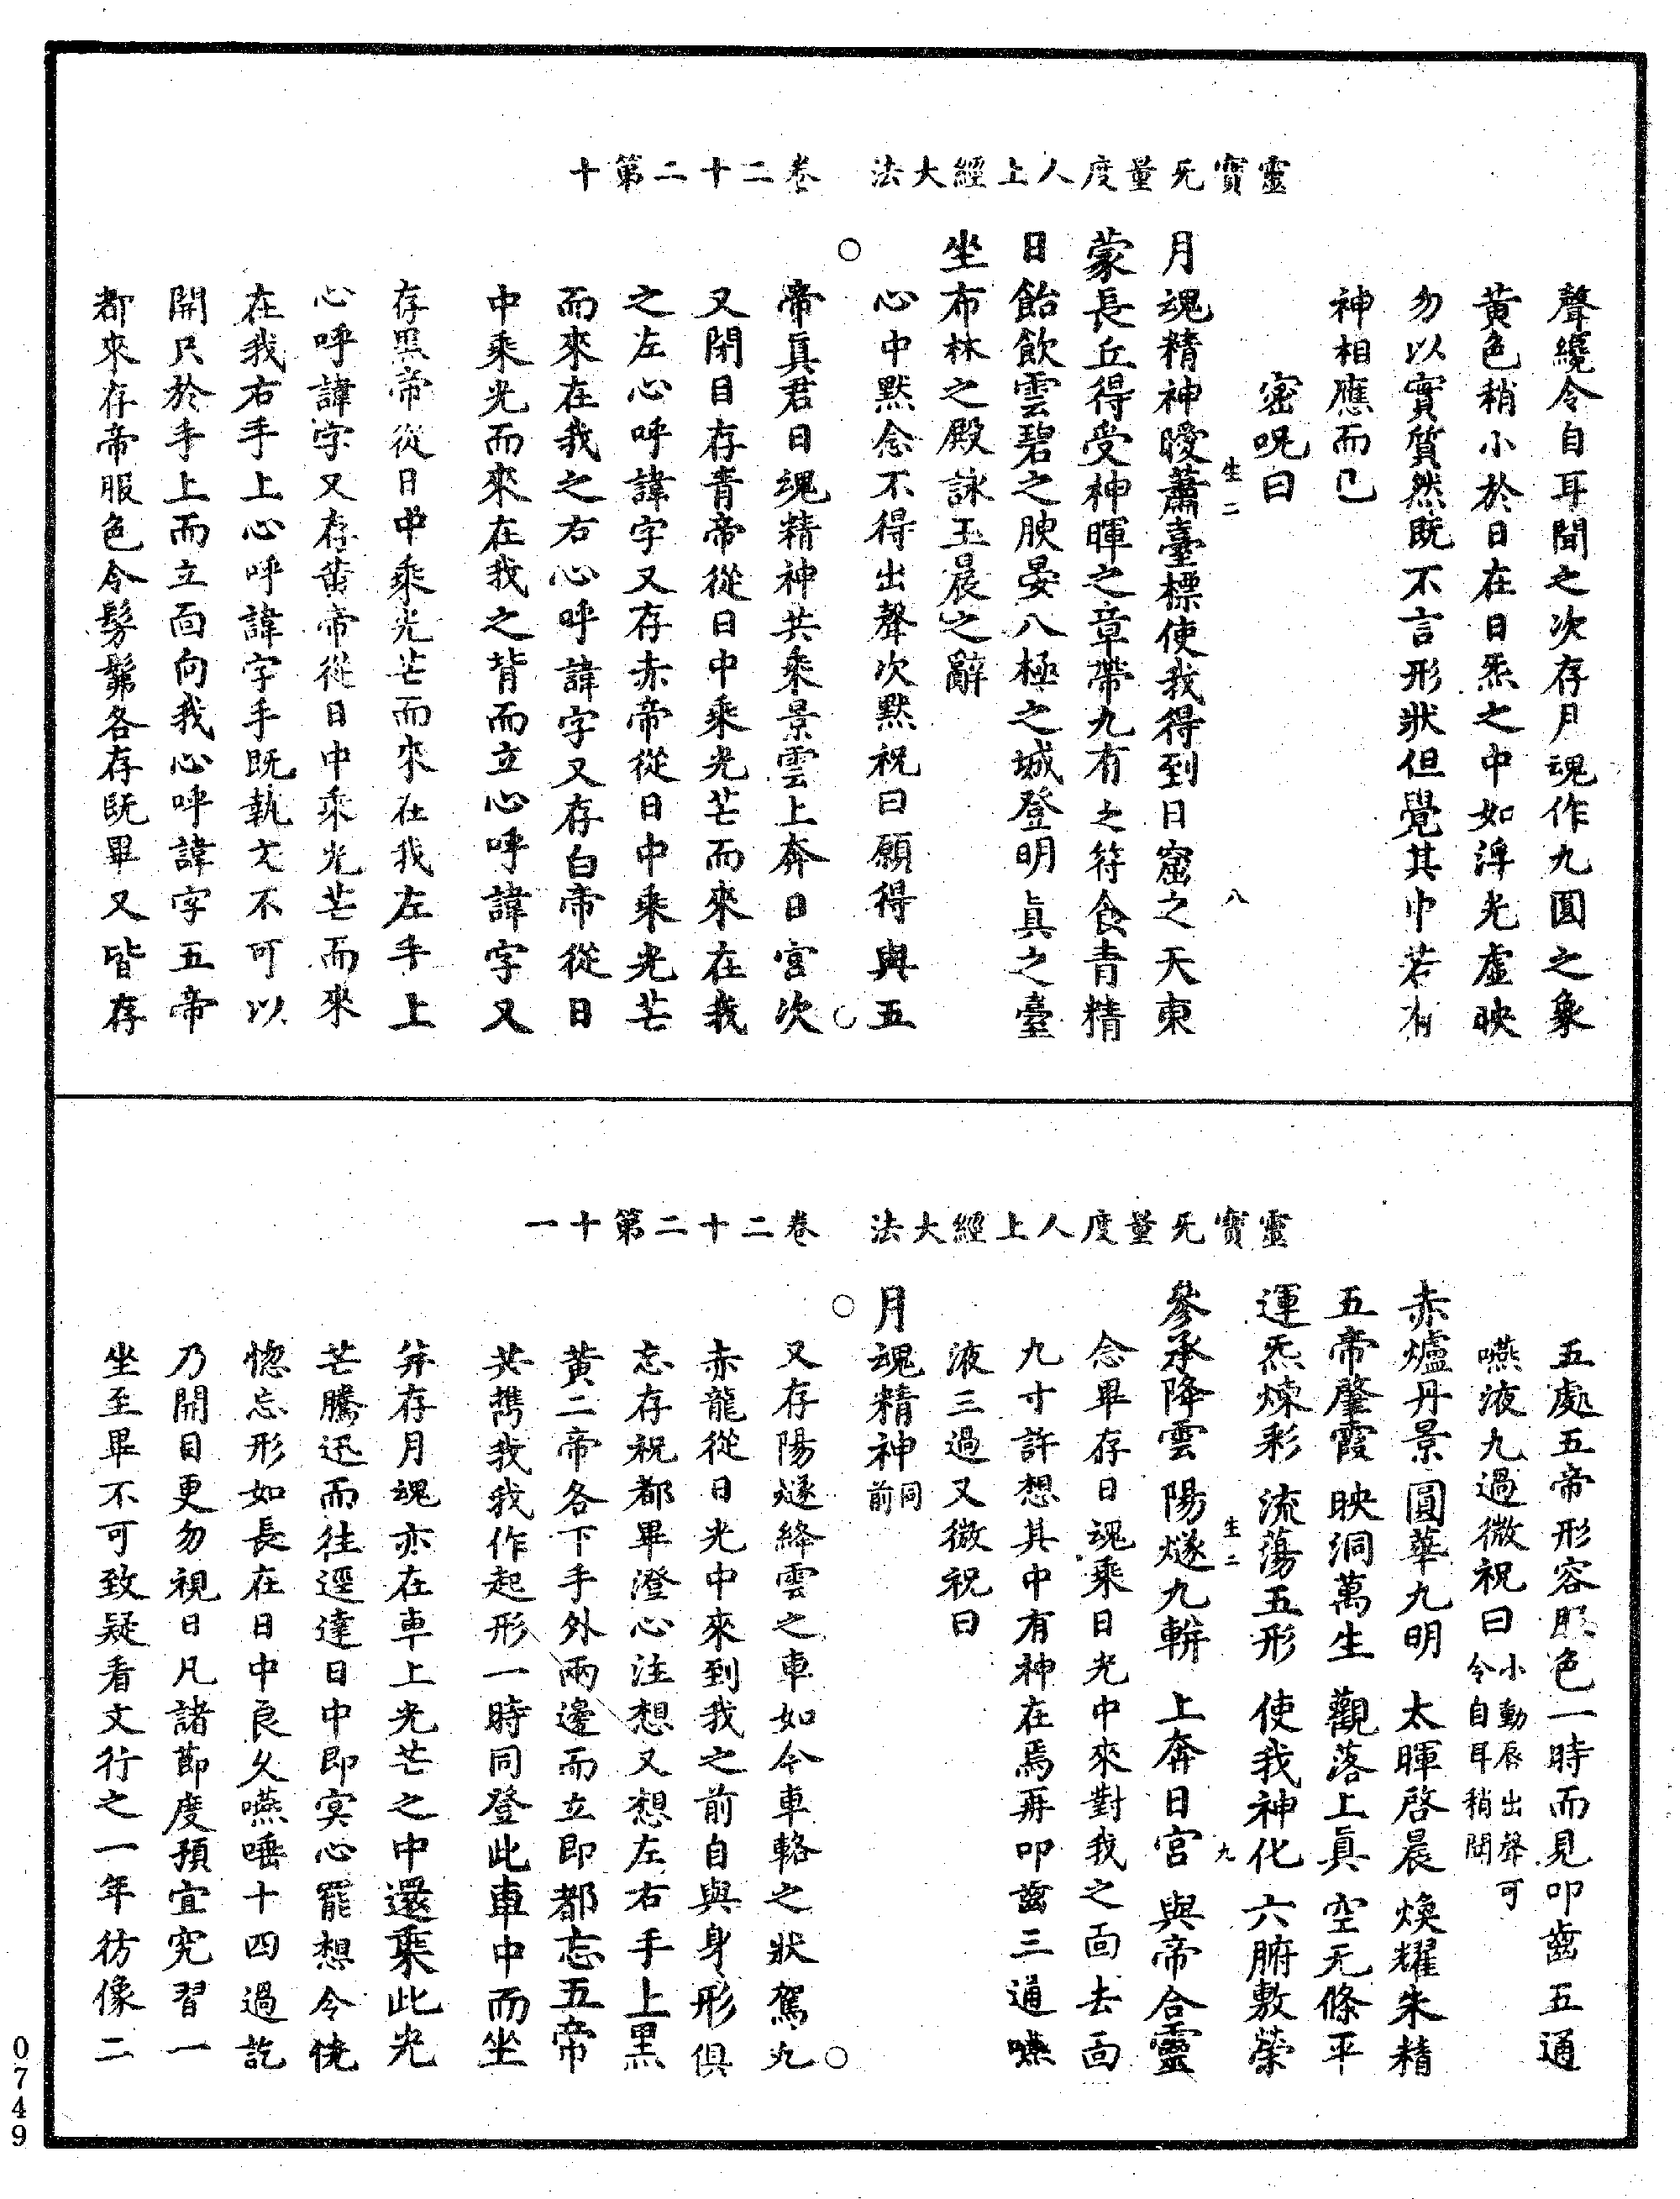 靈寶无量度人上經大法　卷二十二第十
聲纔令自耳聞之次存月魂作九圓之象
黃色稍小於日在日炁之中如浮光虛映
勿以實質然既不言形狀但覺其中若有
神相應而已
密呪曰
生二　八
月魂精神曖蕭臺標使我得到日窟之天東
蒙長丘得受神暉之章帶九有之符食青精
日飴飲雲碧之腴晏八極之城登明真之臺
坐布林之殿詠玉晨之辭
心中默念不得出聲次默祝曰願得與五
帝真君日魂精神共乘景雲上奔日宮次
又閉目存青帝從日中乘光芒而來在我
之左心呼諱字又存赤帝從日中乘光芒
而來在我之右心呼諱字又存白帝從日
中乘光而來在我之背而立心呼諱字又
存黑帝從日中乘光芒而來在我左手上
心呼諱字又存黃帝從日中乘光芒而來
在我右手上心呼諱字手既執文不可以
開只於手上而立面向我心呼諱字五帝
都來存帝服色令髣髴各存既畢又皆存
靈寶无量度人上經大法　卷二十二第十一
五處五帝形容服色一時而見叩齒五通
嚥液九過微祝曰小動唇出聲可令自耳稍聞
赤爐丹景　圓華九明　太暉啓晨　煥耀朱精
五帝肇霞　映洞萬生　觀落上真　空无條平
運炁煉彩　流蕩五形　使我神化　六腑敷榮
生二　九
參承降雲　陽燧九軿　上奔日宮　與帝合靈
念畢存日魂乘日光中來對我之面去面
九寸許想其中有神在焉再叩齒三通嚥
液三過又微祝曰
月魂精神同前
又存陽燧絳雲之車如今車輅之狀駕九
赤龍從日光中來到我之前自與身形俱
忘存祝都畢澄心注想又想左右手上黑
黃二帝各下手外兩邊而立即都忘五帝
共攜我我作起形一時同登此車中而坐
并存月魂亦在車上光芒之中還乘此光
芒騰迅而往逕達日中即冥心罷想令恍
惚忘形如長在日中良久嚥唾十四過訖
乃開目更勿視日凡諸節度預宜究習一
坐至畢不可致疑看文行之一年彷像二
0749